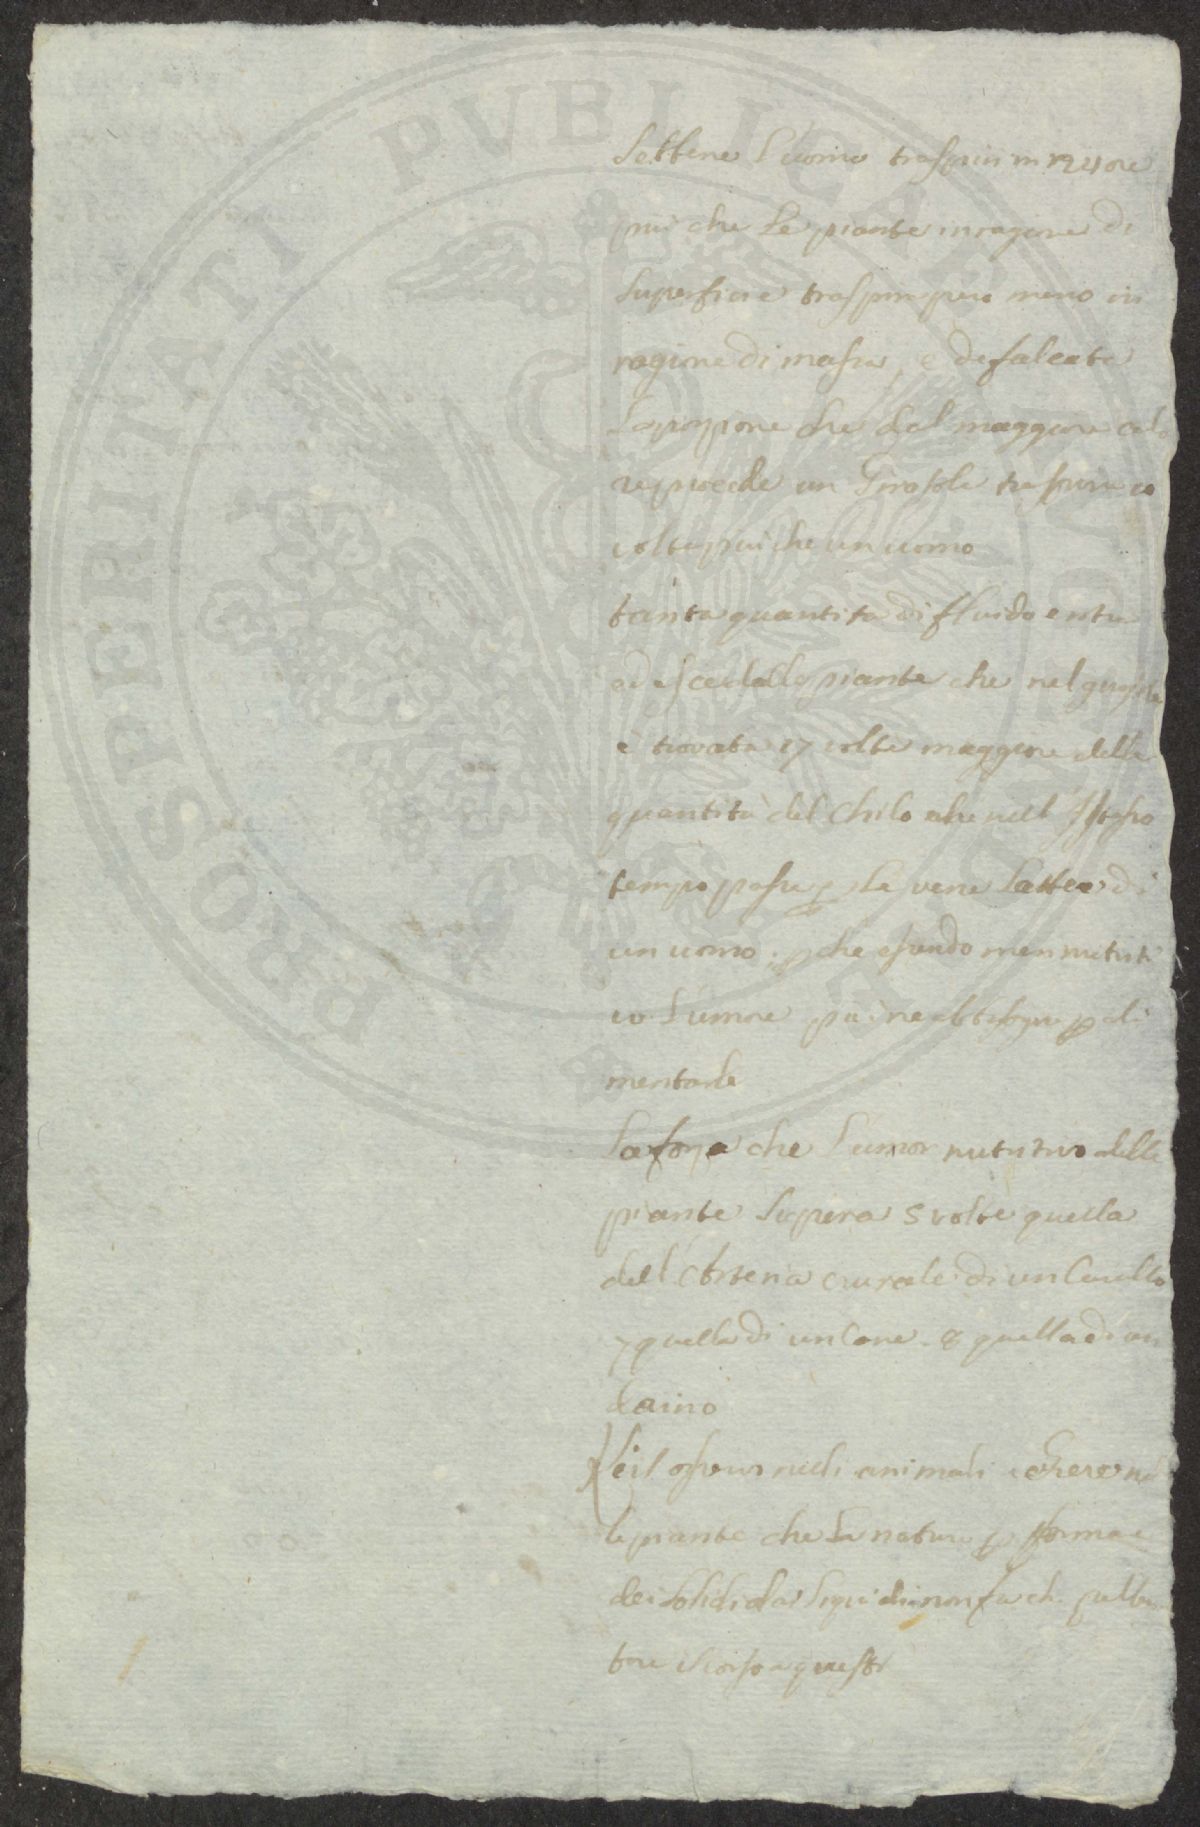 PROSPERITATI PUBLICAE
Sebbene l'uomo traspiri in 24 ore
più che le piante in ragione di
superficie traspira però meno in
ragione di massa, e defalcata
la porzione che dal maggiore calo
re procede un Girasole traspira
volte più che un uomo
tanta quantita di fluido entra
ed esce dalle piante che nel girasole
è trovata 17 volte maggiore della
quantità del Chilo che nell' istesso
tempo passa p le vene lattee di
un uomo. p che essendo men nutriti
vo l'umore più ne abbisogna p ali
mentarle
La forza che l'umor nutritivo delle
piante supera 5 volte quella
dell'Arteria crurale di un Cavallo
7 quella di un Cane. 8 quella di un
daino
si osserva nelli animali
le piante che la natura p formare
dei solidi dai liquidi non fa ch
tare il corso a questi